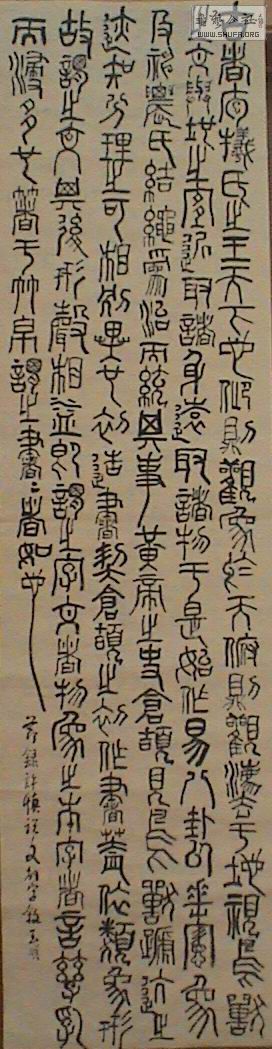 古者庖犧氏之王天下也仰則觀象於天俯則觀灋于地視鳥獸
之文與地之宜近取諸身遠取諸物于是始作易八卦以垂憲象
及神農氏結繩爲治而統其事黃帝之史倉頡見鳥獸蹏迒之
迹知分理之可相別異也初造書契倉頡之初作書蓋依類象形
故謂之文其後形聲相益即謂之字文者物象之本字者言孳乳
而寖多也著于竹帛謂之書〻者如也
節錄許慎說文解字敘
WWW.SHUFA.ORG